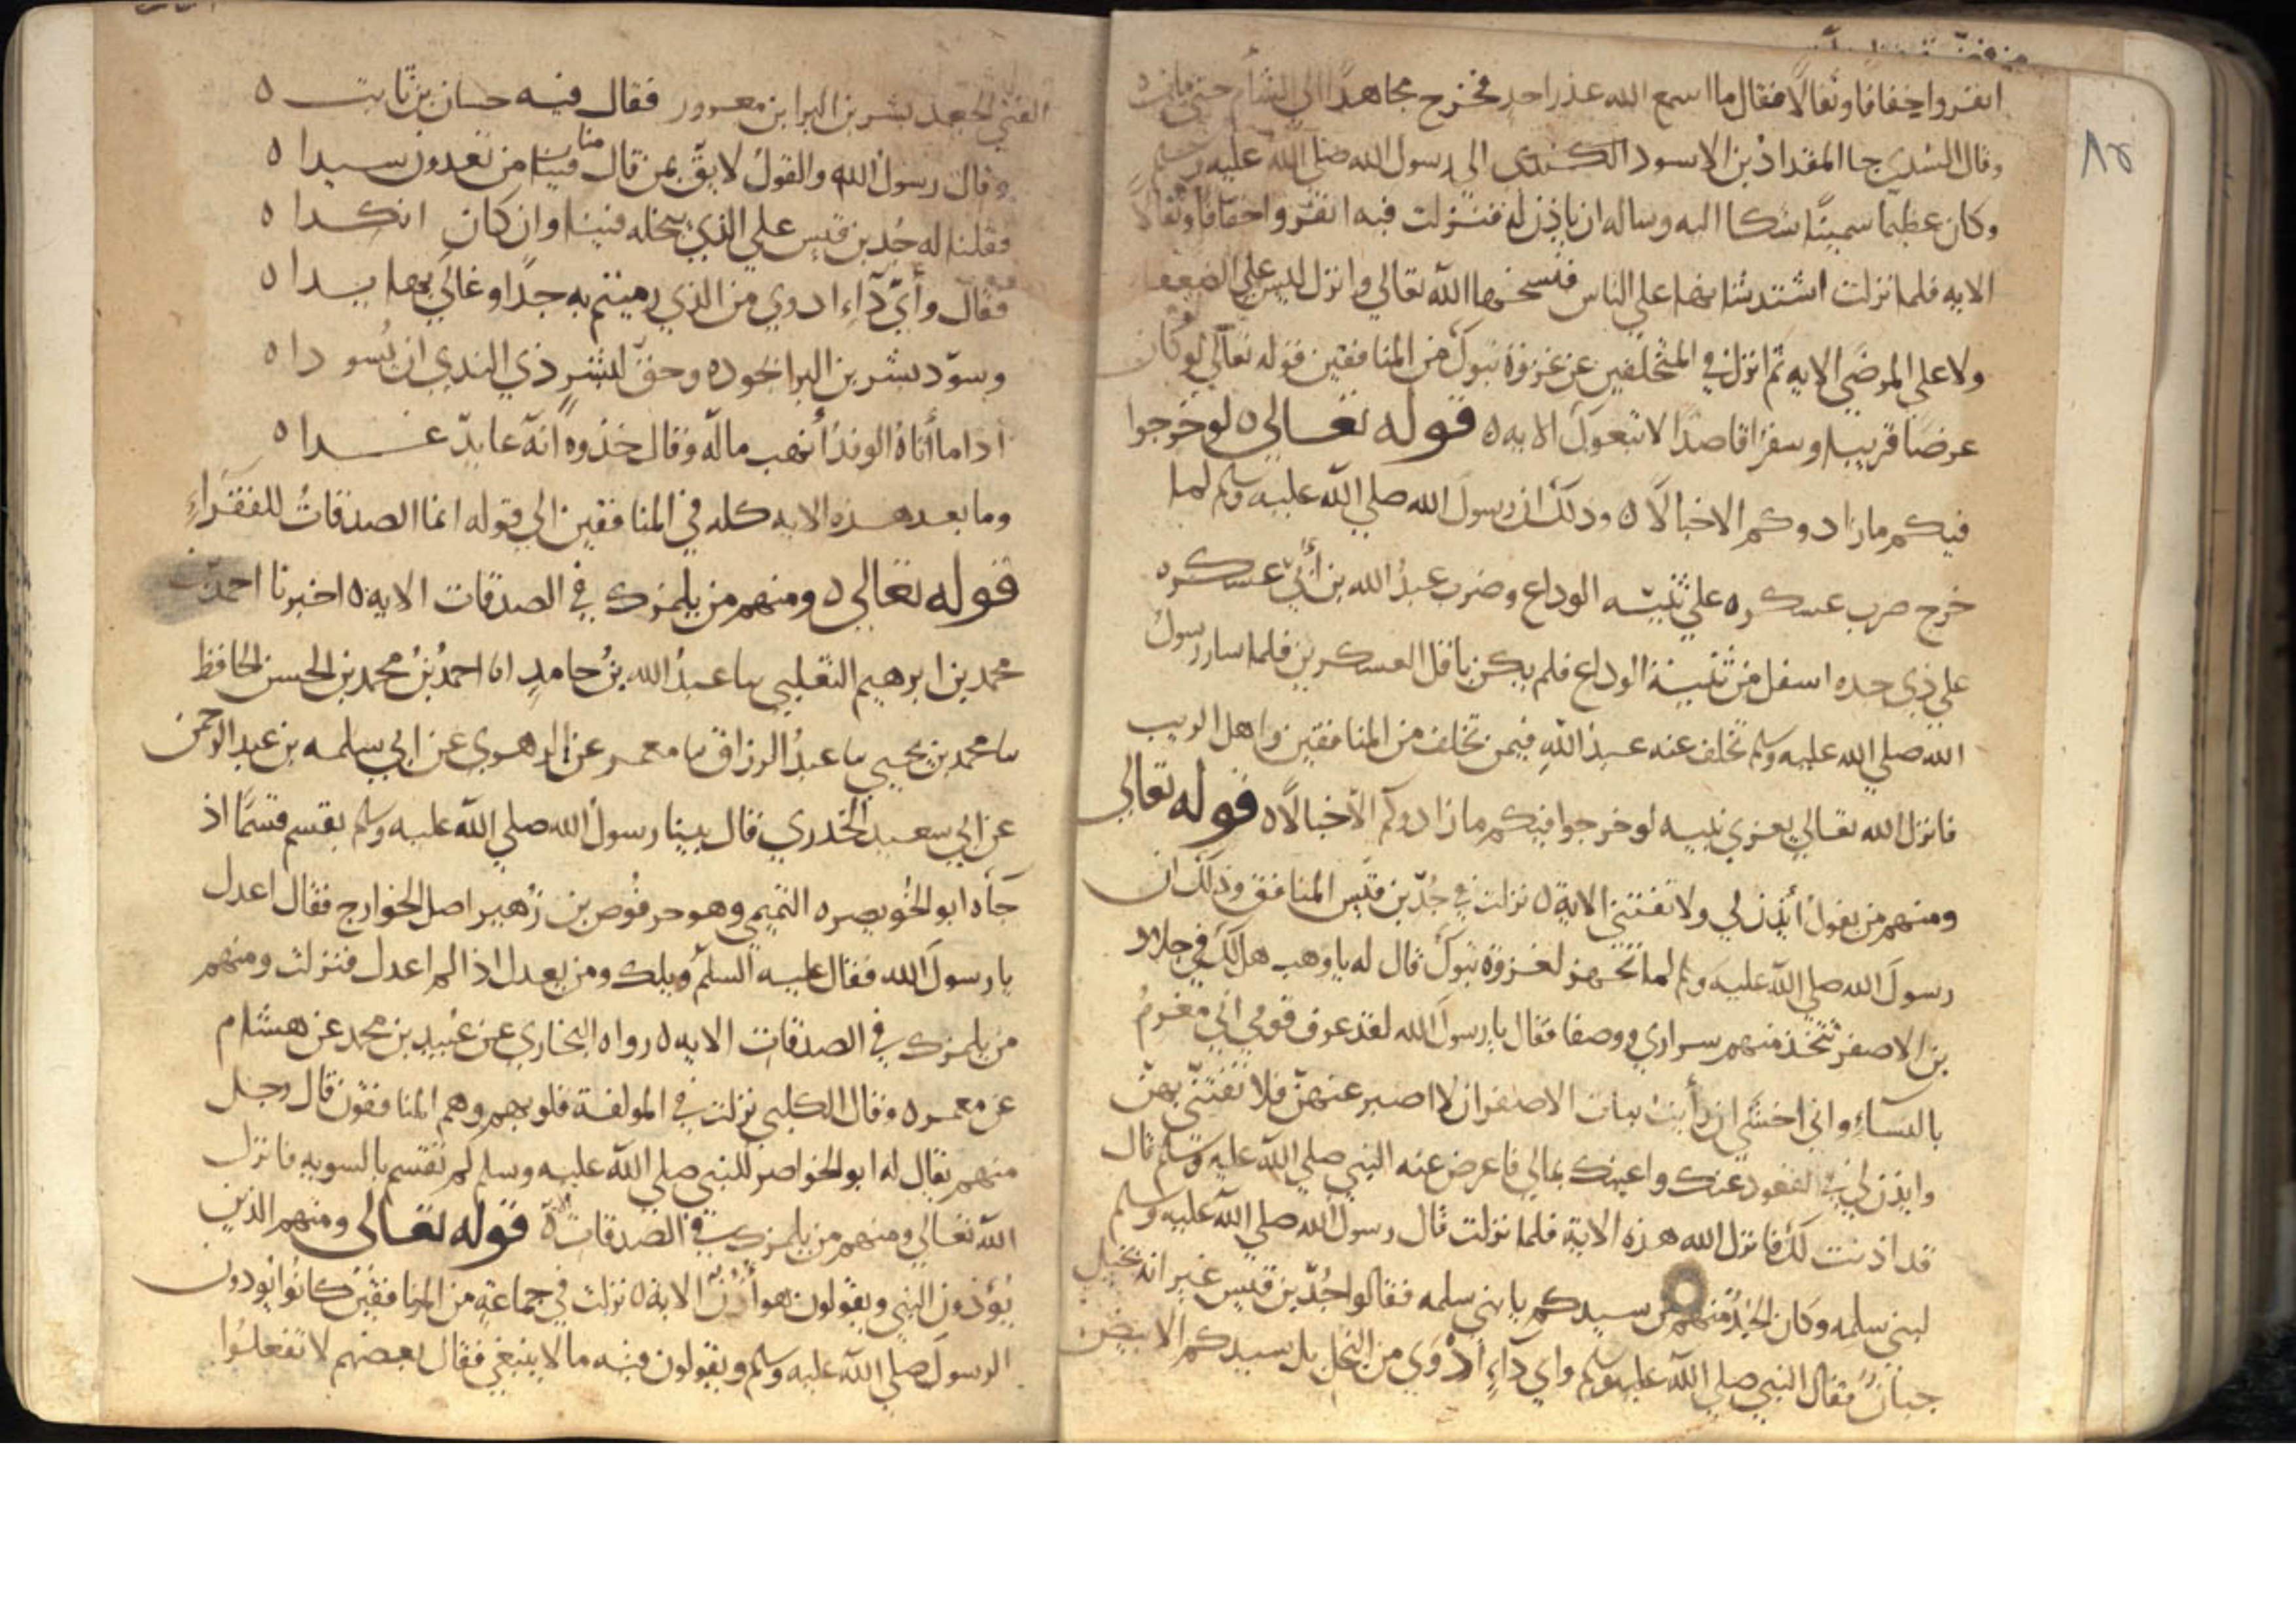 انفروا خفافا وثقالا فقال ما اسمع الله عذر احد فخرج مجاهدا الى الشأم حتى مات ه
وقال السّدي جا المقداد بن الاسود الكندى الى رسول الله صلى الله عليه وسلم
وكان عظيما سمينا شكا اليه وساله ان ياذن له فنزلت فيه انفروا خفافا وثقالا
الايه فلما نزلت اشتد شانها على الناس فنسخها الله تعالى وانزل ليس على الضعفا
ولا على المرضى الايه ثم انزل في المتخلفين عن غزوة تبوك من المنافقين قوله تعالى لو كان
عرضا قريبا وسفرا قاصدا لاتبعوك الايه ه قوله تعالى ه لو خرجوا
فيكم ما زادوكم الا خبالا ه وذلك ان رسول الله صلى الله عليه وسلم لما
خرج ضرب عسكره على ثنيّه الوداع وضرب عبدُ الله بن أُبيّ عسكره
على ذي حده اسفل من ثنية الوداع فلم يكن باقل العسكرين فلما سار رسول
الله صلى الله عليه وسلم تخلف عنه عبد الله فيمن تخلف من المنافقين واهل الريب
فانزل الله تعالى يعزى نبيه لو خرجوا فيكم ما زادوكم الا خبالا ه قوله تعالى
ومنهم من يقول أيذن لي ولا تفتني الاية ه نزلت في جُدّ بن قيس المنافق وذلك ان
رسولَ الله صلى الله عليه وسلم لما تجهز لغزوة تبوك قال له يا وهب هل لك في جلاد
بني الاصفر تتخذ منهم سراري ووصفا فقال يا رسول الله لقد عرف قومي اني مغرمٌ
بالنسآءِ واني اخشى ان رأيت بنات الاصفر ان لا اصبر عنهنّ فلا تفتنّي بهنّ
وايذن لي في القعود عنك واعينك بمالي فاعرض عنه النبي صلى الله عليه وسلم قال
قد اذنت لك فانزل الله هذه الاية فلما نزلت قال رسول الله صلى الله عليه وسلم
لبني سلمه وكان الجُدّ منهم من سيدكم يا بني سلمه فقالوا جُدّ بن قيس غير انه بخيل
جبانٌ فقال النبي صلى الله عليه وسلم واي دآءٍ أدْوَي من البخل بل سيدكم الابيض
الفتى الجعد بشر بن البرا بن معرور فقال فيه حسان بن ثابت ه
وقال رسولُ الله والقولُ لاحقٌ بمن قال منا من تعدون سيدا ه
فقلنا له جُد بن قيس على الذي نبخله فينا وان كان انكدا ه
فقال وأيّ دآءِ ادوي من الذي رميتم به جدًا وغالى بها يدا ه
وسوّد بشر بن البرا بجوده وحق لبشرٍ ذي الندى ان يُسودا ه
اذا ما أتاهُ الوفدُ أنهب ماله وقال خذوه انه عايدٌ غدا ه
وما بعد هذه الايه كله في المنافقين الى قوله انما الصدقاتُ للفقرآءِ
قوله تعالى ه ومنهم من يلمزك في الصدقات الايه ه اخبرنا احمد بن
محمد بن ابرهيم الثعلبي ما عبدُ الله بنُ حامدٍ انا احمدُ بنُ محمد بن الحسن الحافظ
ما محمد بن يحيى ما عبدُ الرزاق ما معمر عن الزهري عن ابي سلمه بن عبد الرحمن
عن ابي سعيد الخدري قال بينا رسول الله صلى الله عليه وسلم يقسم قسمًا اذ
جَآه ابو الخُويصره التميمي وهو حرقُوص بن زُهير اصل الخوارج فقال اعدل
يا رسولَ الله فقال عليه السلم ويلك ومن يعدل اذا لم اعدل فنزلت ومنهم
من يلمزك في الصدقات الايه ه رواه البخاري عن عُبيد بن محمد عن هشام
عن معمر ه وقال الكلبي نزلت في المولفة قلوبهم وهم المنافقون قال رجل
منهم يقال له ابو الخواصر للنبي صلى الله عليه وسلم لم تقسم بالسويه فانزل
الله تعالى ومنهم من يلمزك في الصدقات ه قوله تعالى ومنهم الذين
يُؤذون النبي ويقولون هو أُذنٌ الاية ه نزلت في جماعةٍ من المنافقين كانُوا يوذون
الرسولَ صلى الله عليه وسلم ويقولون فيه ما لا ينبغي فقال بعضهم لا تفعلُوا